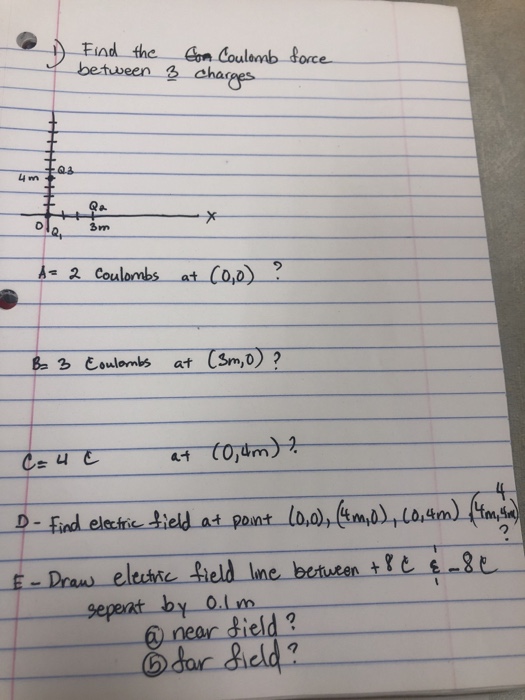 1) Find the Coulomb force
between 3 charges
4m
Q3
Q2
X
0
Q1
3m
A= 2 Coulombs at (0,0) ?
B= 3 Coulombs at (3m,0) ?
C= 4 C at (0,4m) ?
4
D- Find electric field at point (0,0), (4m,0), (0,4m) (4m,4m)
?
E- Draw electric field line between +8 C & -8 C
seperat by 0.1m
ⓐ near field?
ⓑ far field?